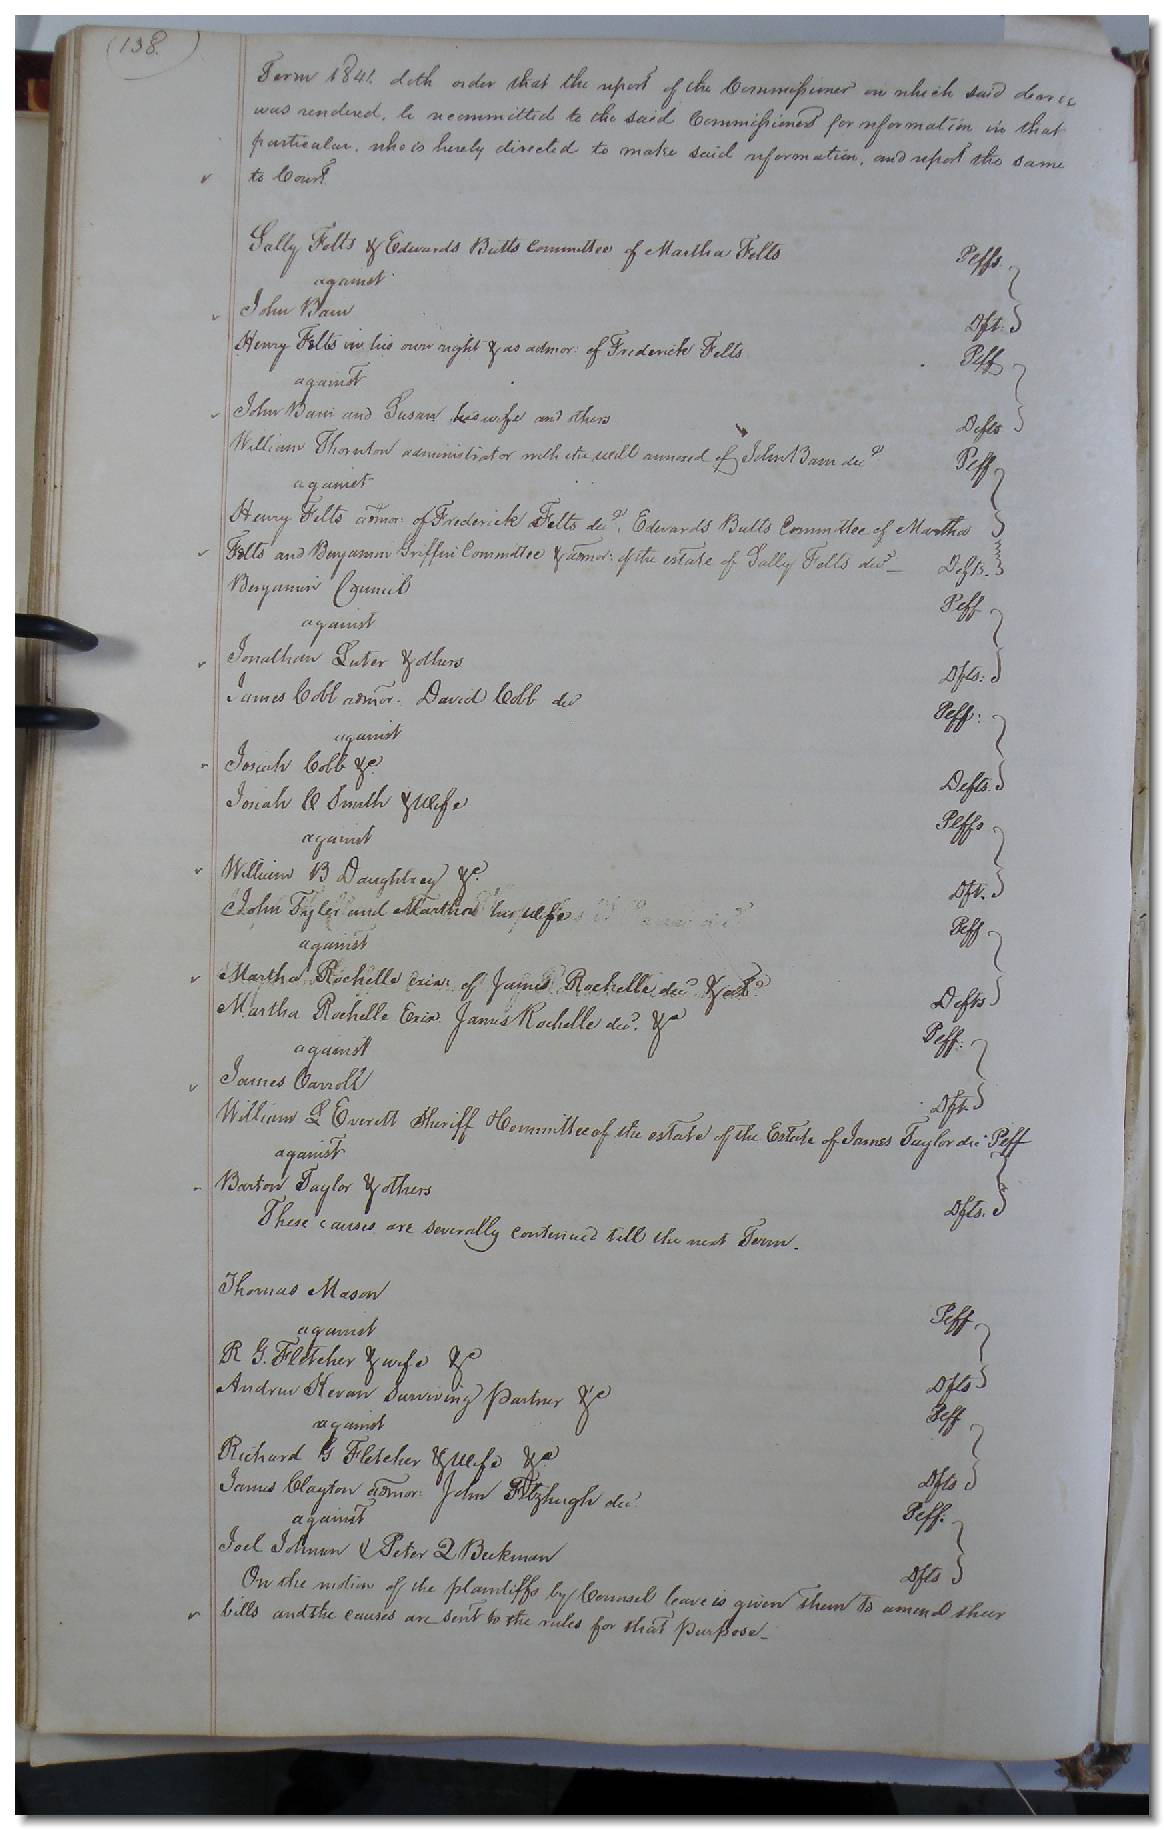 (138.)
Term 1841. doth order that the report of the Commissioner on which said decree
was rendered, be recommitted to the said Commissioner for reformation in that
particular, who is hereby directed to make said reformation, and report the same
to Court.
Sally Felts & Edwards Butts Committee of Martha Felts Peffs.
against
John Bain Dft.
Henry Felts in his own right & as admor: of Frederick Felts Peff
against
John Bain and Susan his wife and others Defts
William Thornton administrator with the will annexed of John Bain decd Peff
against
Henry Felts admor: of Frederick Felts decd, Edwards Butts Committee of Martha
Felts and Benjamin Griffin Committee & admor: of the estate of Sally Felts decd Defts.
Benjamin Council Peff
against
Jonathan Luter & others Dfts:
James Cobb admor: David Cobb decd Peff:
against
Josiah Cobb &c. Defts.
Josiah C Smith & wife Peffs
against
William B Daughtrey &c. Dft.
John Tyler and Martha his wife Peff
against
Martha Rochelle exix: of James Rochelle decd Defts
Martha Rochelle Exix James Rochelle decd. &c Peff:
against
James Carroll Dft.
William L Everett Sheriff Committee of the estate of the Estate of James Taylor decd Peff
against
Barton Taylor & others Dfts.
These causes are severally continued till the next Term.
Thomas Mason Peff
against
R G. Fletcher & wife &c Dfts
Andrew Kevan surviving partner &c Peff
against
Richard G Fletcher & wife &c Dfts
James Clayton admor: John Fitzhugh decd. Peff.
against
Joel Johnson & Peter Q Beekman Dfts
On the motion of the plaintiffs by Counsel leave is given them to amend their
bills and the causes are sent to the rules for that purpose.